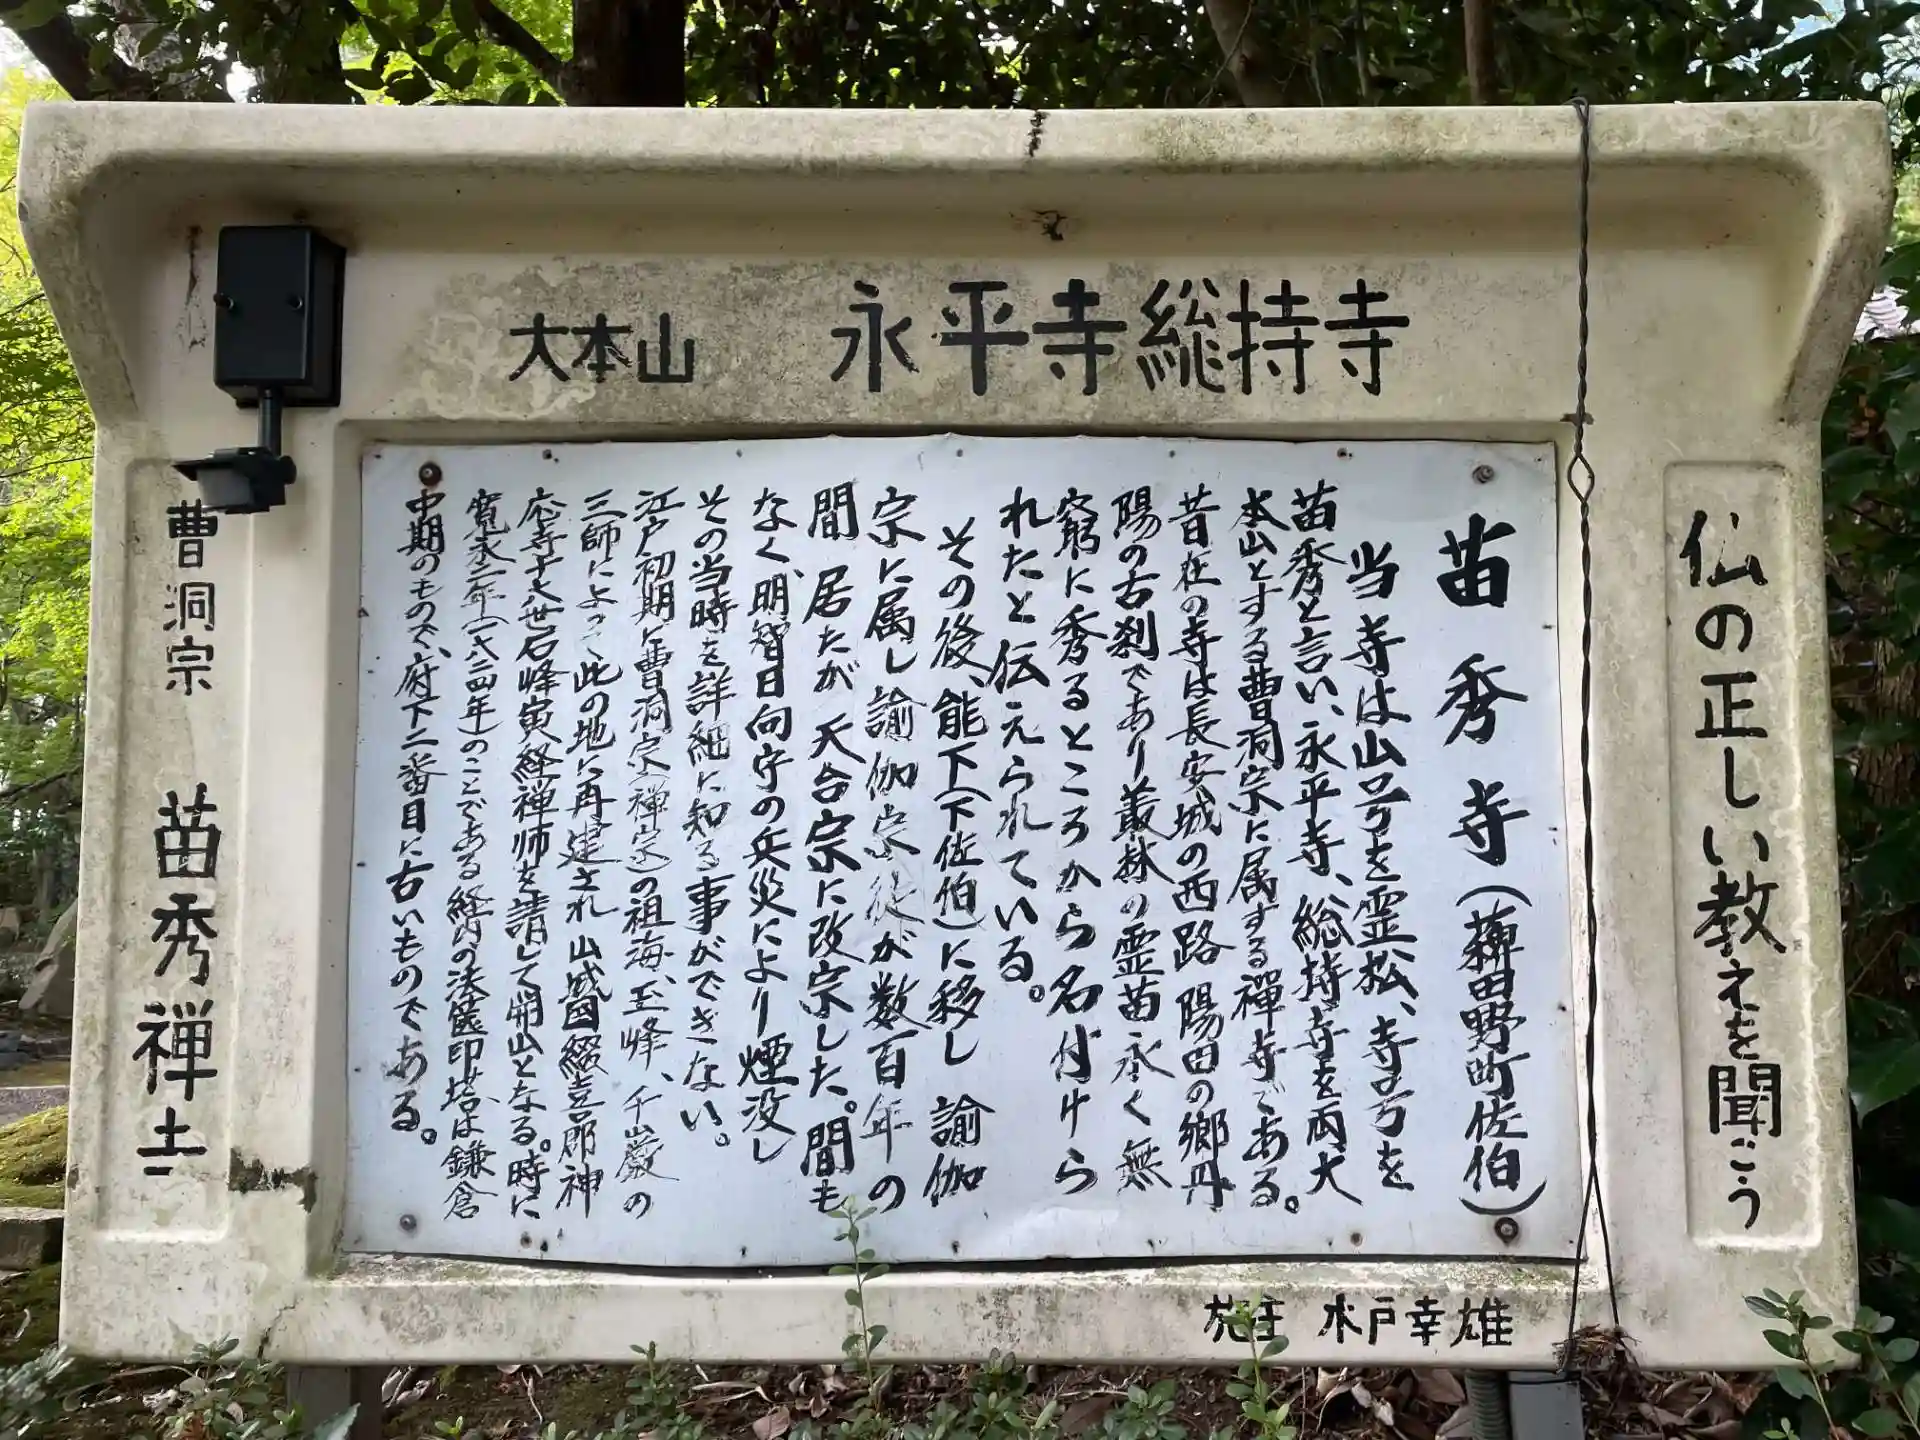 大本山 永平寺総持寺
仏の正しい教えを聞こう
苗秀寺(薭田野町佐伯)
当寺は山号を霊松、寺号を
苗秀と言い、永平寺、総持寺を両大
本山とする曹洞宗に属する禪寺である。
昔在の寺は長安城の西路陽田の郷丹
陽の古刹であり叢林の霊苗永く無
窮に秀るところから名付けら
れたと伝えられている。
その後、能下(下佐伯)に移し諭伽
宗に属し諭伽宗徒が数百年の
間居たが天台宗に改宗した。間も
なく、明智日向守の兵災により煙没し
その当時を詳細に知る事ができない。
江戸初期に曹洞宗(禅宗)の祖海、玉峰、千山巌の
三師によって此の地に再建され山城国綴喜郡神
応寺十七世石峰寅経禅师を請して開山となる。時に
寛永元年(一六二四年)のことである経内の法篋印塔は鎌倉
中期のもので、府下二番目に古いものである。
曹洞宗 苗秀禅寺
施主 木戸幸雄